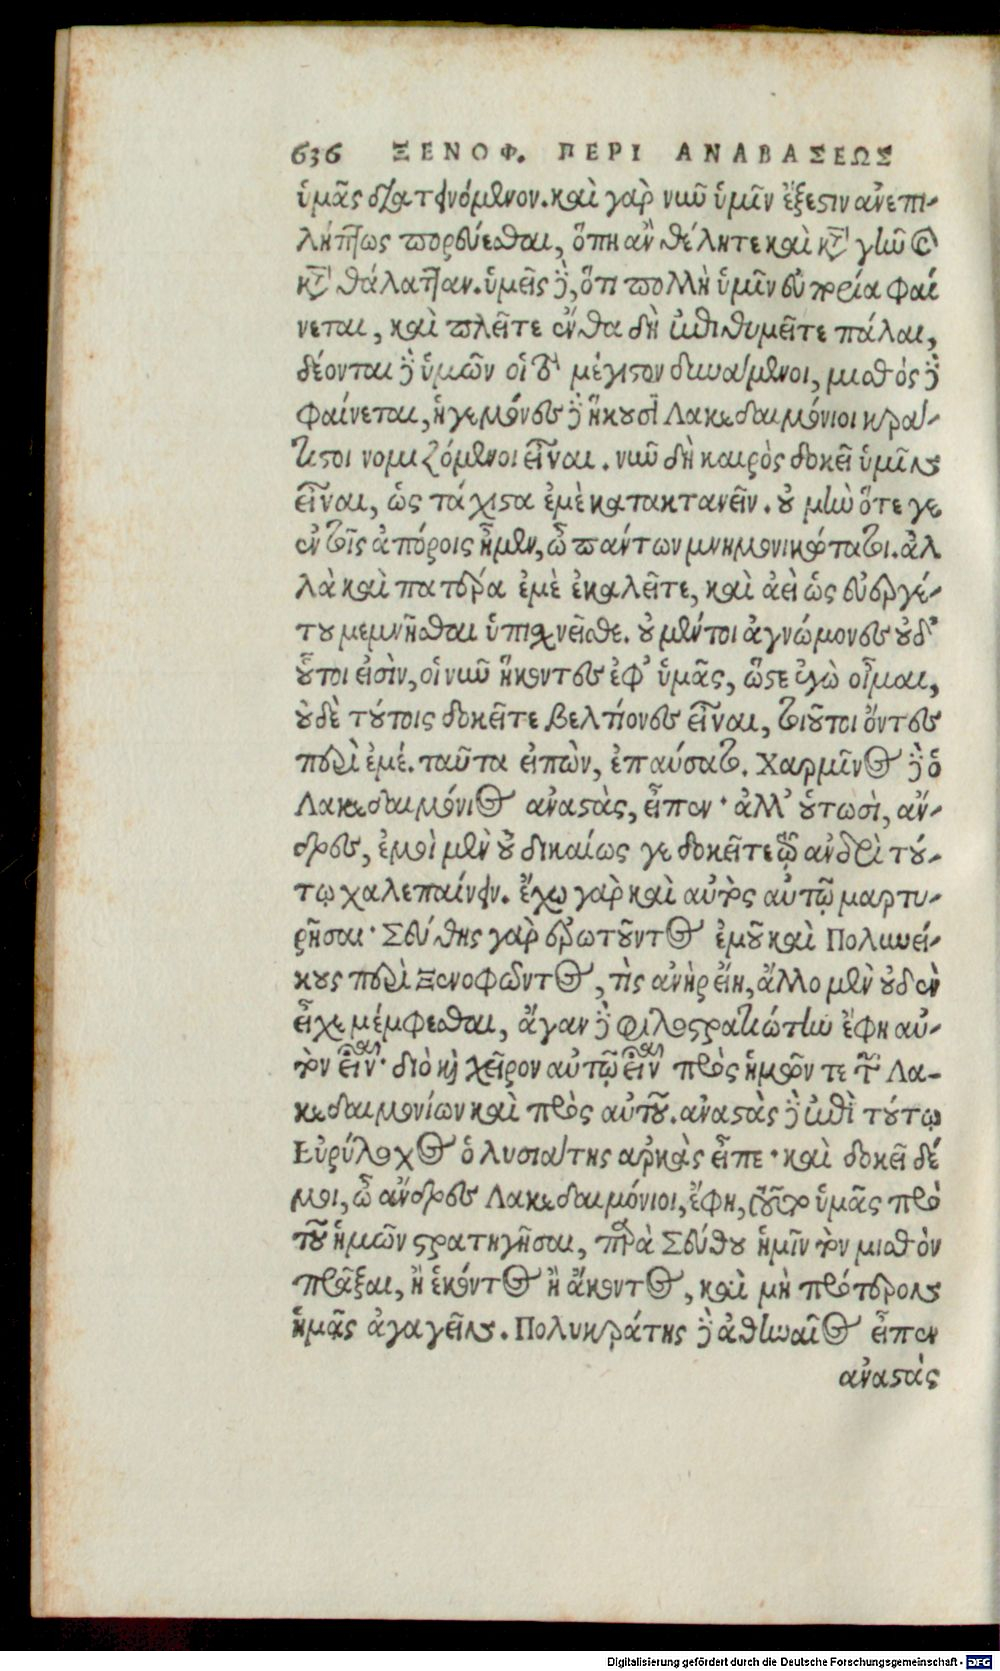 636 ΞΕΝΟΦ. ΠΕΡΙ ΑΝΑΒΑΣΕΩΣ
ὑμᾶς διατεινόμενον. καὶ γὰρ νῦν ὑμῖν ἔξεστιν ἀνεπι-
λήπτως πορεύεσθαι, ὅπη ἂν θέλητε καὶ κατὰ γῆν καὶ
κατὰ θάλατταν. ὑμεῖς δὲ, ὅτι πολλὴ ὑμῖν εὐπορία φαί
νεται, καὶ πλεῖτε ἔνθα δὴ ἐπιθυμεῖτε πάλαι,
δέονται δὲ ὑμῶν οἱ τὸ μέγιστον δυνάμενοι, μισθὸς δὲ
φαίνεται, ἡγεμόνες δὲ ἥκουσι Λακεδαιμόνιοι κρά-
τιστοι νομιζόμενοι εἶναι. νῦν δὴ καιρὸς δοκεῖ ὑμῖν
εἶναι, ὡς τάχιστα ἐμὲ κατακτανεῖν. οὐ μὴν ὅτε γε
ἐν τοῖς ἀπόροις ἦμεν, ὦ πάντων μνημονικώτατοι. ἀλ
λὰ καὶ πατέρα ἐμὲ ἐκαλεῖτε, καὶ ἀεὶ ὡς εὐεργέ-
του μεμνῆσθαι ὑπισχνεῖσθε. οὐ μέντοι ἀγνώμονες οὐδ᾽
οὗτοι εἰσὶν, οἱ νῦν ἥκοντες ἐφ᾽ ὑμᾶς, ὥστε ἐγὼ οἶμαι,
οὐδὲ τούτοις δοκεῖτε βελτίονες εἶναι, τοιοῦτοι ὄντες
περὶ ἐμέ. ταῦτα εἰπὼν, ἐπαύσατο. Χαρμῖνος δὲ ὁ
Λακεδαιμόνιος ἀναστὰς, εἶπεν· ἀλλ᾽ οὑτωσὶ, ἄν-
δρες, ἐμοὶ μὲν οὐ δικαίως γε δοκεῖτε τῷ ἀνδρὶ τού-
τῳ χαλεπαίνειν. ἔχω γὰρ καὶ αὐτὸς αὐτῷ μαρτυ-
ρῆσαι· Σεύθης γὰρ ἐρωτῶντος ἐμοῦ καὶ Πολυνεί-
κους περὶ Ξενοφῶντος, τὶς ἀνὴρ εἴη, ἄλλο μὲν οὐδὲν
εἶχε μέμφεσθαι, ἄγαν δὲ φιλοστρατιώτην ἔφη αὐ-
τὸν εἶναι· διὸ καὶ χεῖρον αὐτῷ εἶναι πρὸς ἡμῶν τε τῶν Λα-
κεδαιμονίων καὶ πρὸς αὐτοῦ. ἀναστὰς δὲ ἐπὶ τούτῳ
Εὐρύλοχος ὁ λυσιάτης ἀρκὰς εἶπε· καὶ δοκεῖ δέ
μοι, ὦ ἄνδρες Λακεδαιμόνιοι, ἔφη, τοῦτο ὑμᾶς πρό
τοῦ ἡμῶν στρατηγῆσαι, παρὰ Σεύθου ἡμῖν τὸν μισθὸν
πρᾶξαι, ἢ ἑκόντος ἢ ἄκοντος, καὶ μὴ πρότερον
ἡμᾶς ἀγαγεῖν. Πολυκράτης δὲ ἀθηναῖος εἶπεν
ἀναστὰς
Digitalisierung gefördert durch die Deutsche Forschungsgemeinschaft - DFG